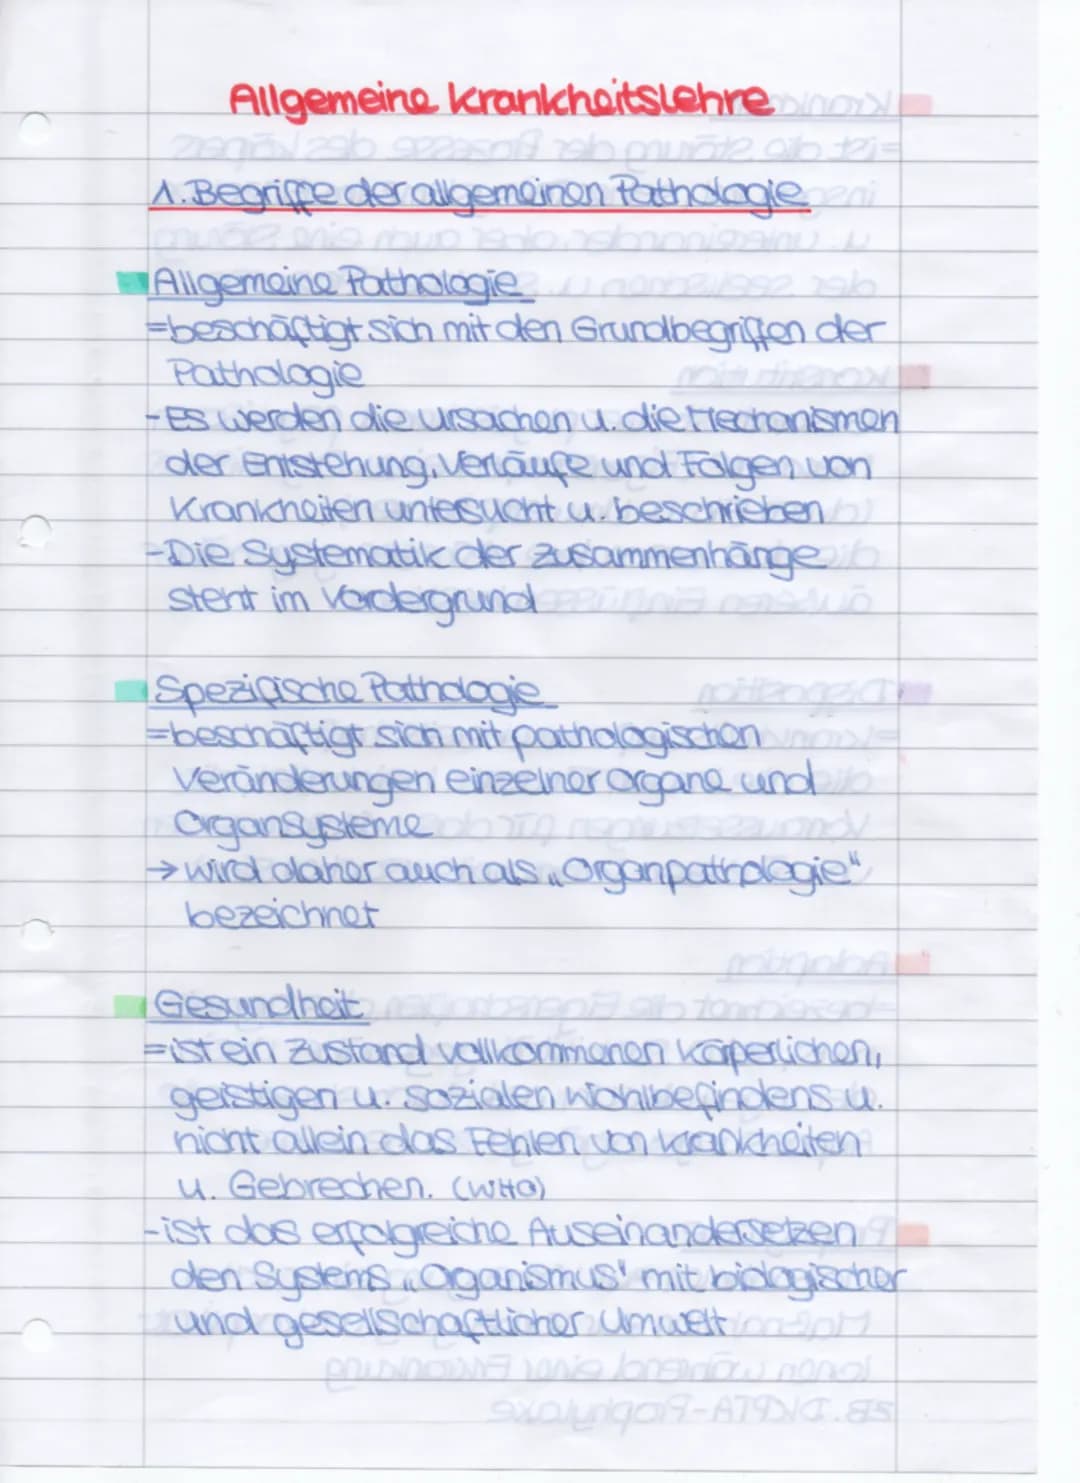 Allgemeine Krankheitslehre
1. Begriffe der allgemeinen Pathologie
Allgemeine Pathologie
=beschäftigt sich mit den Grundbegriffen der
Pathologie
-Es werden die Ursachen u. die Mechanismen
der Entstehung, Verläufe und Folgen von
Krankheiten untersucht u. beschrieben
-Die Systematik der Zusammenhänge
steht im Vordergrund
Spezifische Pathologie
=beschäftigt sich mit pathologischen
Veränderungen einzelner Organe und
Organsysteme
→ wird daher auch als „Organpathologie"
bezeichnet
Gesundheit
=ist ein Zustand vollkommenen körperlichen,
geistigen u. sozialen Wohlbefindens u.
nicht allein das Fehlen von Krankheiten
u. Gebrechen. (WHO)
-ist das erfolgreiche Auseinandersetzen
den Systems „Oganismus" mit biologischer
und gesellschaftlicher Umwelt